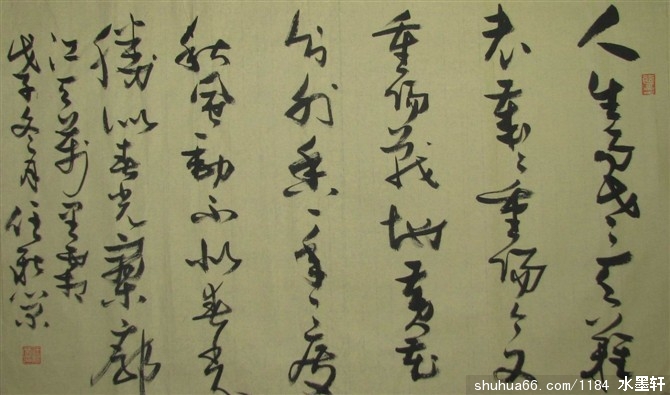 人生易老天難
老歲々重陽今又
重陽戰地黃花
分外香一年一度
秋風勁不似春光
勝似春光寥廓
江天萬里霜
戊子冬月任
shuhua66.com/1184 水墨轩